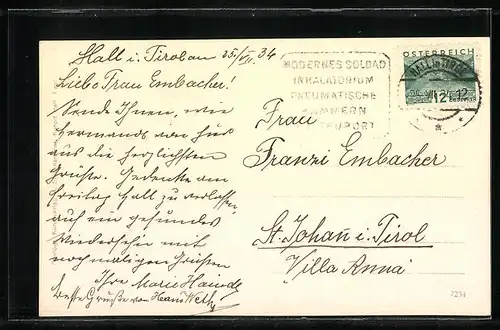 Hall i. Tirol am 25/VII. 34
Liebe Frau Embacher!
Sende Ihnen, wie
von hier
aus die herzlichsten
Grüsse. Gedenke am
Freitag Hall zu verlassen,
auf ein gesundes
Wiedersehn mit
nochmaligen Grüssen
Ihre Marie
Beste Grüße von Hans
MODERNES SOLBAD
INHALATORIUM
PNEUMATISCHE
KAMMERN
ÖSTERREICH
HALL in TIROL
12
Frau
Franzi Embacher
St. Johan i. Tirol
Villa Anna
7234